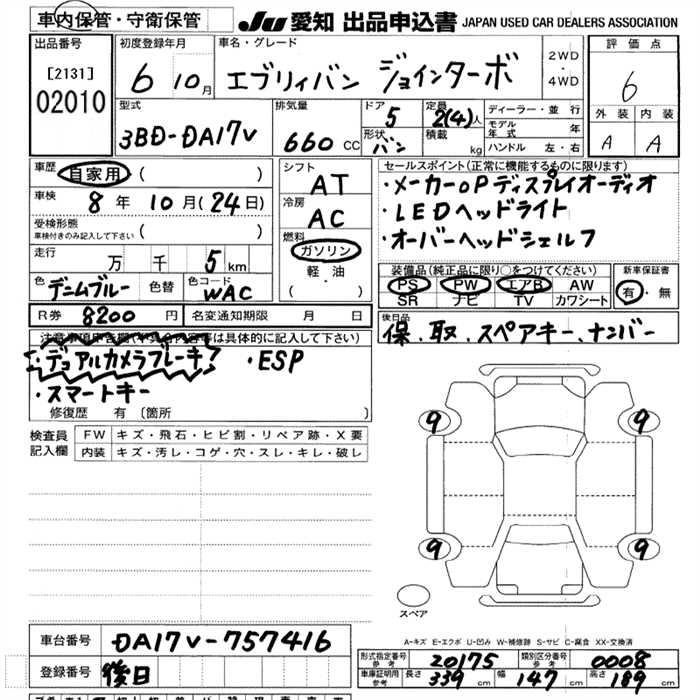 車内保管・守衛保管
JU 愛知 出品申込書 JAPAN USED CAR DEALERS ASSOCIATION
出品番号
[2131]
02010
初度登録年月
6 10月
車名・グレード
エブリィバン ジョインターボ
2WD
・
4WD
評価点
6
外装 内装
A A
型式
3BD-DA17V
排気量
660 CC
ドア
5
形状
バン
定員
2(4)人
積載
kg
ディーラー・並行
モデル年式 年
ハンドル 左・右
車歴
自家用 ( )
車検
8年 10月(24日)
受検形態
車検付きのみ記入して下さい ( )
走行
万 千 5km
色 デニムブルー 色替 色コード WAC
R券 8200円 名変通知期限 月 日
シフト
AT
冷房
AC
燃料
ガソリン
軽・油
( )
セールスポイント(正常に機能するものに限ります)
・メーカーOPディスプレイオーディオ
・LEDヘッドライト
・オーバーヘッドシェルフ
装備品(純正品に限り○をつけてください)
PS PW エアB AW
SR ナビ TV カワシート
新車保証書
有・無
後日品
保、取、スペアキー、ナンバー
注意事項申告欄(不具合内容等は具体的に記入して下さい)
・デュアルカメラブレーキ ・ESP
・スマートキー
修復歴 有 〔箇所 〕
検査員記入欄
FW キズ・飛石・ヒビ割・リペア跡・X要
内装 キズ・汚レ・コゲ・穴・スレ・キレ・破レ
9 9
9 9
スペア
A-キズ E-エクボ U-凹み W-補修跡 S-サビ C-腐食 XX-交換済
車台番号 DA17V-757416
登録番号 後日
形式指定番号 参考 20175 類別区分番号 参考 0008
車庫証明用 参考 長さ 339cm 幅 147cm 高さ 189cm